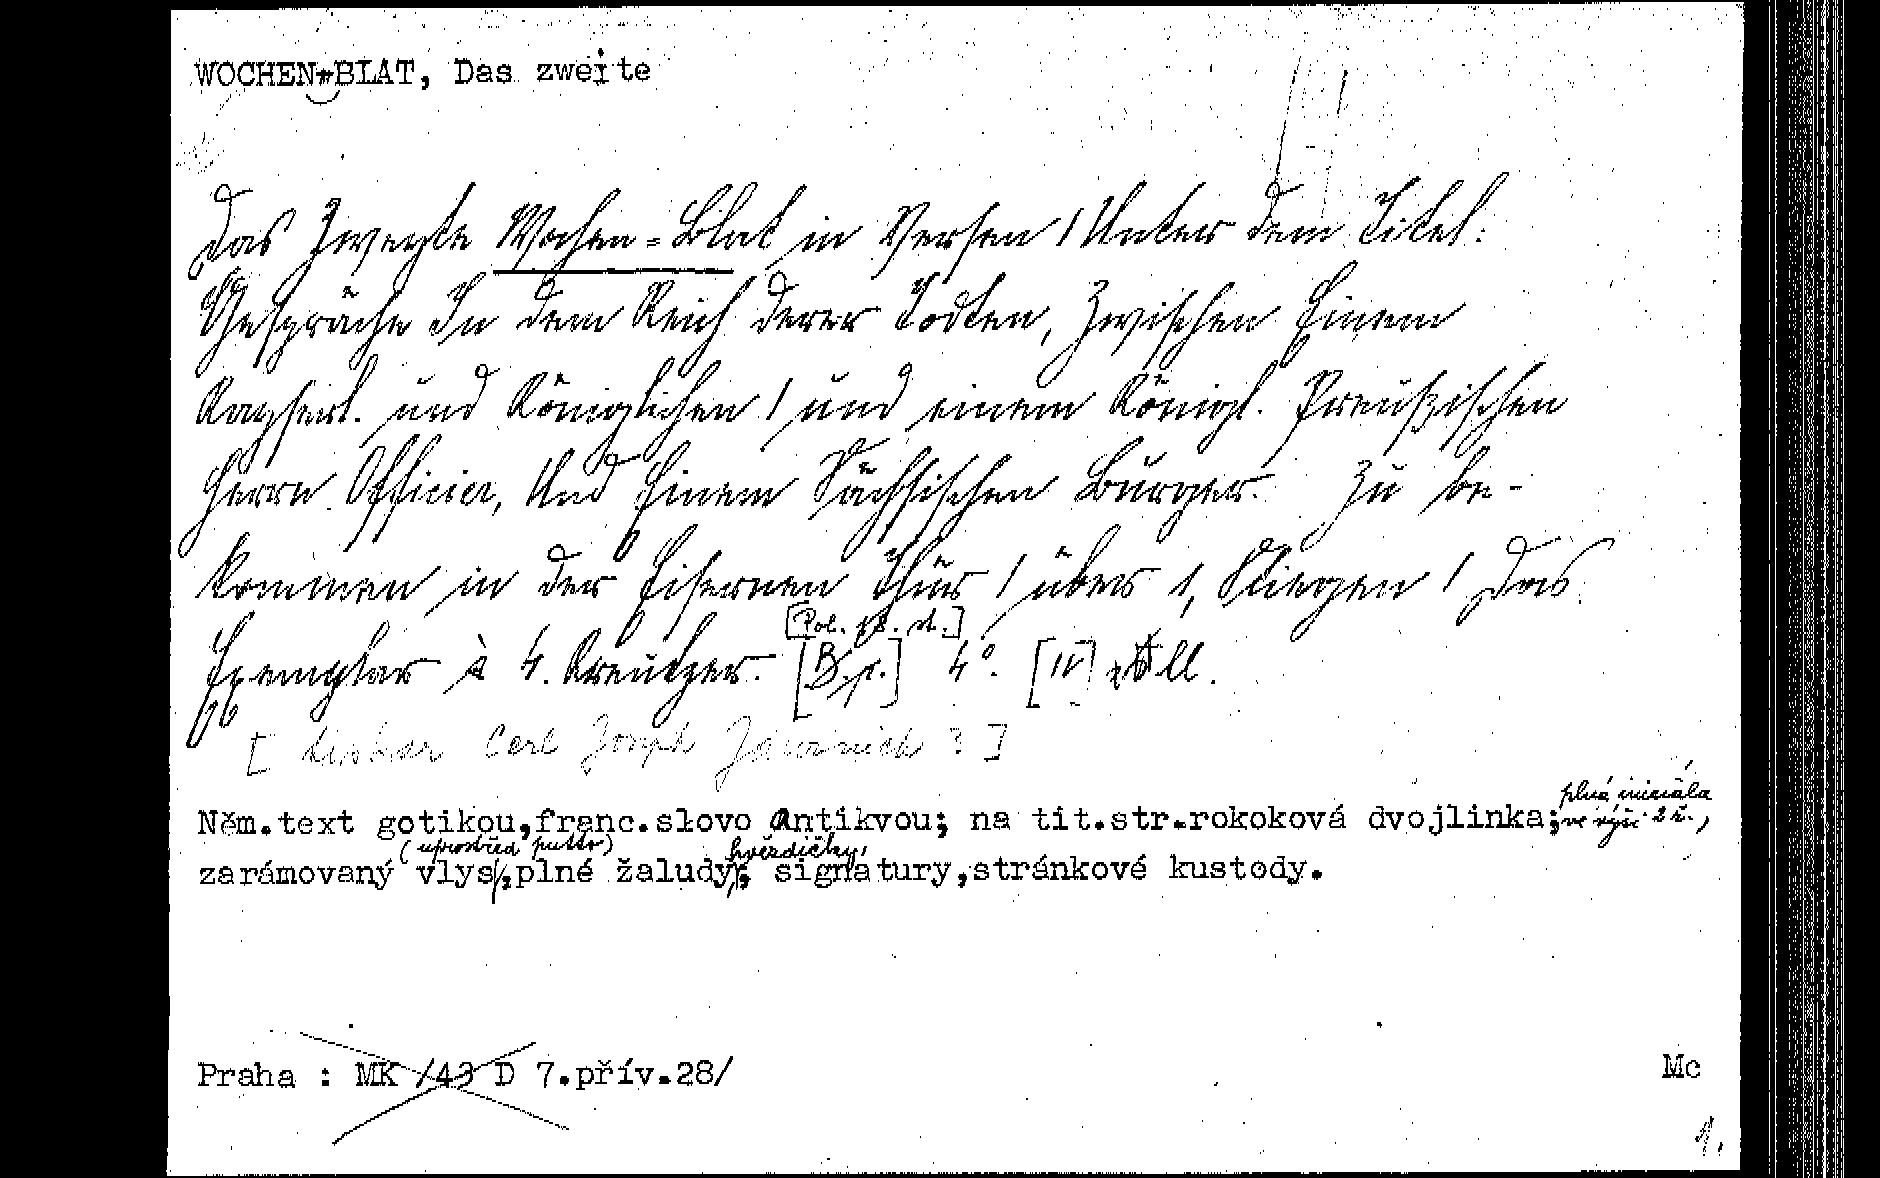 WOCHEN-BLAT, Das zweite
Das Zweyte Wochen=Blat in Versen / Unter dem Titel:
Gespräche In dem Reich derer Todten, Zwischen Einem
Kayserl. und Königlichen / und einem Königl. Preußischen
Herrn Officier, Und Einem Sächsischen Bürger. Zu be-
kommen in der Eisernen Thür / über 1, Stiegen / Das
[Pol. 18. st.]
Exemplar à 4. Kreutzer. 4°. [IV] ll.
[ tiskar Carl Joseph Jauernich ? ]
plná iniciála
Něm.text gotikou,franc.slovo antikvou; na tit.str.rokoková dvojlinka; ve výši 2 ř.,
(uprostřed putto) hvězdičky,
zarámovaný vlys,plné žaludy; signatury,stránkové kustody.
Praha : MK /43 D 7.přív.28/ Mc
1.